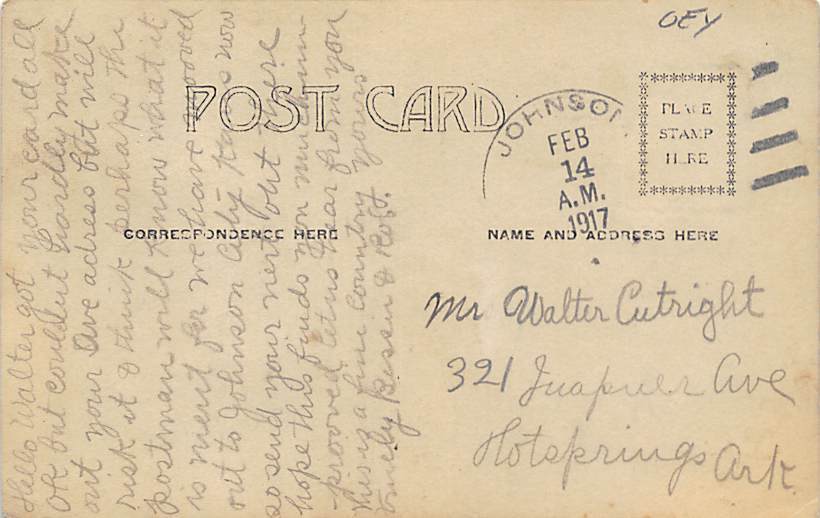 OEY
POST CARD
JOHNSON
FEB
14
A.M.
1917
PLACE
STAMP
HERE
CORRESPONDENCE HERE
NAME AND ADDRESS HERE
Hello Walter got your card all
OK but couldent hardly make
out your Ave adress but will
risk it & think perhaps the
postman will know what it
is ment for we have mooved
out to Johnson City Kans now
so send your next out here
hope this finds you much im-
prooved let us hear from you
this is a fine country yours
truely Bessie & Rolf.
Mr Walter Cutright
321 Ave
Hotsprings Ark.